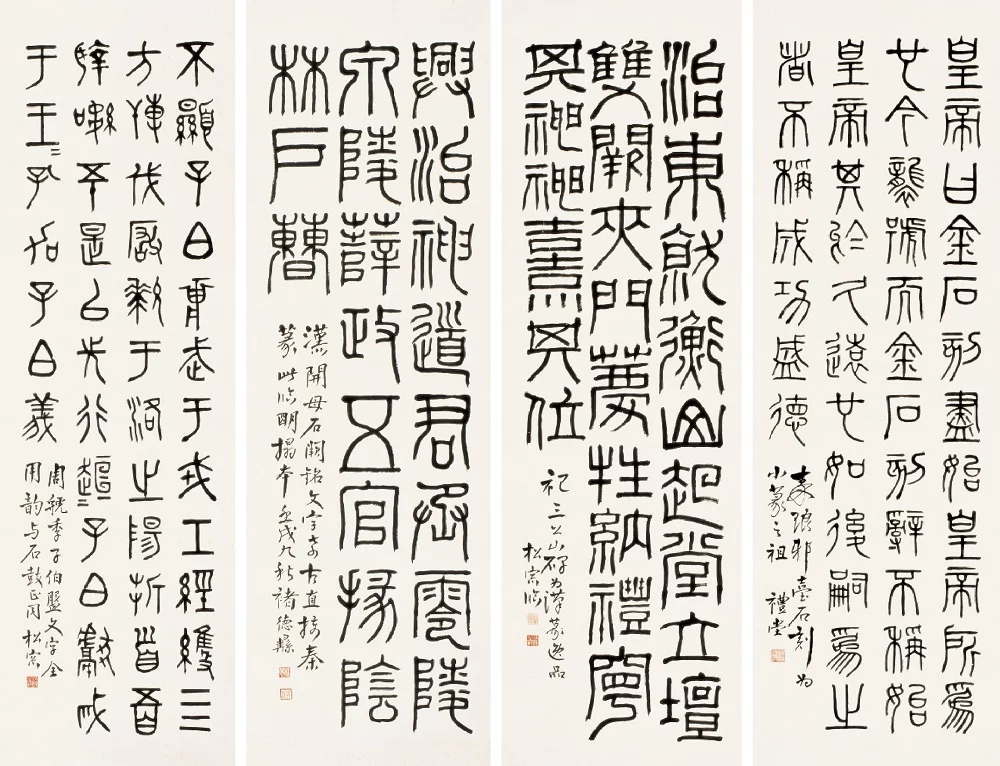 皇帝曰金石刻盡始皇帝所為
也今襲號而金石刻辭不稱始
皇帝其於久遠也如後嗣為之
者不稱成功盛德
秦琅邪臺石刻為
小篆之祖 禮堂
治東就衡山起堂立壇
雙闕夾門薦牲納禮寧
其神神熹其位
祀三公山碑為漢篆逸品
松窗臨
興治神道君丞零陵
泉陵薛政五官掾陰
林戶曹
漢開母石闕銘文字奇古直接秦
篆此臨明搨本壬戌九秋褚德彝
不顯子白壯武于戎工經維亖
方搏伐玁狁于洛之陽折首五百
執訊五十是以先行趄=子白獻馘
于王=孔加子白義
周虢季子伯盤文字全
用韵与石鼓正同 松窗